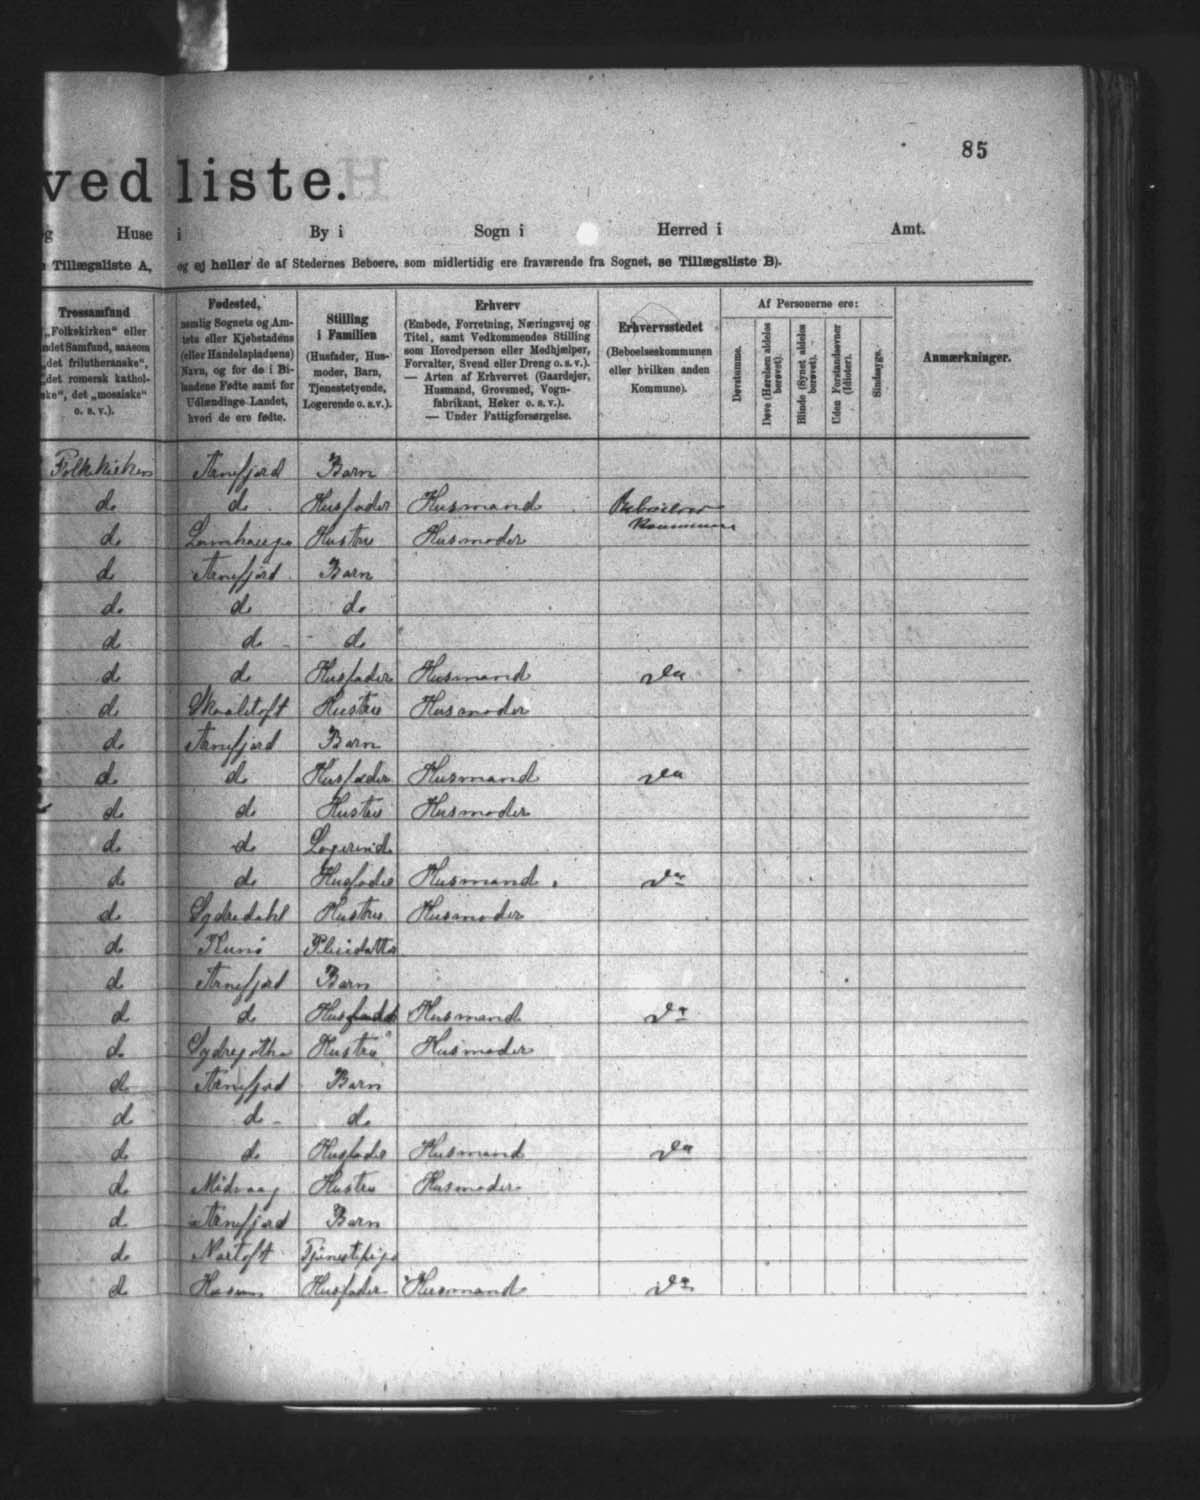 85
ved liste.
g Huse i By i Sogn i Herred i Amt.
Tillægsliste A, og ej heller de af Stedernes Beboere, som midlertidig ere fraværende fra Sognet, se Tillægsliste B).
Trossamfund
„Folkekirken“ eller
ndet Samfund, saasom
„det frilutheranske“,
„det romersk kathol-
ske“, det „mosaiske“
o. s. v.).
Fødested,
nemlig Sognets og Am-
tets eller Kjøbstadens
(eller Handelspladsens)
Navn, og for de i Bi-
landene Fødte samt for
Udlændinge Landet,
hvori de ere fødte.
Stilling
i Familien
(Husfader, Hus-
moder, Barn,
Tjenestetyende,
Logerende o. s. v.).
Erhverv
(Embede, Forretning, Næringsvej og
Titel, samt Vedkommendes Stilling
som Hovedperson eller Medhjælper,
Forvalter, Svend eller Dreng o. s. v.).
— Arten af Erhvervet (Gaardejer,
Husmand, Grovsmed, Vogn-
fabrikant, Høker o. s. v.).
— Under Fattigforsørgelse.
Erhvervsstedet
(Beboelseskommunen
eller hvilken anden
Kommune).
Af Personerne ere:
Døvstumme.
Døve (Hørelsen aldeles
berøvet).
Blinde (Synet aldeles
berøvet).
Uden Forstandsevner
(Idioter).
Sindssyge.
Anmærkninger.
Folkekirken Arnefjord Barn
do do Husfader Husmand
do Hustru Husmoder Kommunen
do Arnefjord Barn
do do do
do do do
do do Husfader Husmand do
do Skaaletoft Hustru Husmoder
do Arnefjord Barn
do do Husfader Husmand do
do do Hustru Husmoder
do do Logerende
do do Husfader Husmand do
do Sydredahl Hustru Husmoder
do Kunø Pleiedatter
do Arnefjord Barn
do do Husfader Husmand do
do Sydregøthe Hustru Husmoder
do Arnefjord Barn
do do do
do do Husfader Husmand do
do Midvaag Hustru Husmoder
do Arnefjord Barn
do Nortoft Tjenestepige
do Husfader Husmand do